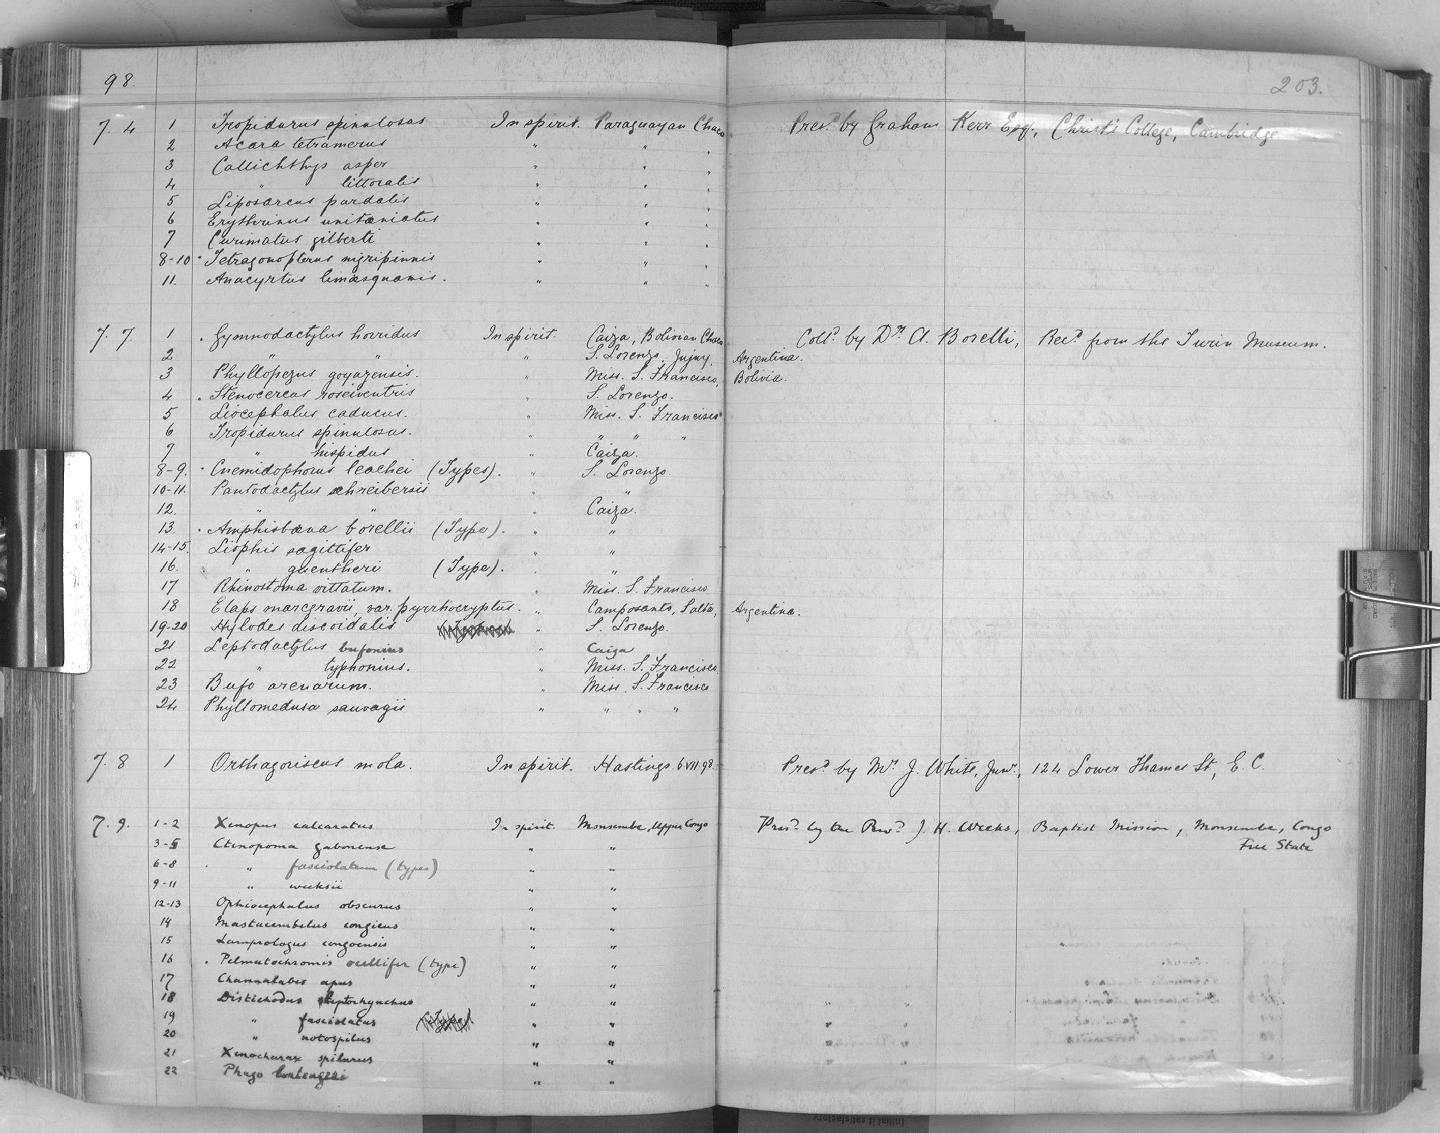 98.
203.
7. 4 1 Tropidurus spinulosus In spirit. Paraguayan Chaco Pres.d by Graham Kerr Esq., Christ's College, Cambridge.
2 Acara tetramerus " " "
3 Callichthys asper " " "
4 " littoralis " " "
5 Liposarcus pardalis " " "
6 Erythrinus unitæniatus " " "
7 Curimatus gilberti " " "
8-10 Tetragonopterus nigripinnis " " "
11. Anacyrtus limæsquamis. " " "
7. 7 1 Gymnodactylus horridus In spirit. Caiza, Bolivian Chaco Coll.d by Dr. A. Borelli, Rec.d from the Turin Museum.
2 " " " S. Lorenzo, Jujuy, Argentina.
3 Phyllopezus goyazensis. " Miss. S. Francisco, Bolivia.
4 Stenocercus roseiventris S. Lorenzo.
5 Liocephalus caducus. Miss. S. Francisco
6 Tropidurus spinulosus. " " " "
7 " hispidus " Caiza.
8-9. Cnemidophorus leachei (Types). " S. Lorenzo.
10-11. Pantodactylus schreibersii " "
12. " " " Caiza.
13. Amphisbæna borellii (Type). " "
14-15. Liophis sagittifer " "
16. " guentheri (Type). " "
17 Rhinostoma vittatum. " Miss. S. Francisco
18 Elaps marcgravii, var. pyrrhocryptus. " Camposanto, Salta, Argentina.
19-20 Hylodes discoidalis " S. Lorenzo.
21 Leptodactylus bufonius " Caiza
22 " typhonius. " Miss. S. Francisco.
23 Bufo arenarum. " Miss. S. Francisco
24 Phyllomedusa sauvagii " " " "
7. 8 1 Orthagoriscus mola. In spirit. Hastings. 6.VII.98. Pres.d by Mr. J. White, Junr., 124 Lower Thames St, E. C.
7. 9. 1-2 Xenopus calcaratus In spirit. Monsembe, Upper Congo Pres.d by the Rev.d J. H. Weeks, Baptist Mission, Monsembe, Congo
Free State
3-5 Ctenopoma gabonense " "
6-8 " fasciolatum (types) " "
9-11 " weeksii " "
12-13 Ophiocephalus obscurus " "
14 Mastacembelus congicus " "
15 Lamprologus congoensis " "
16 Pelmatochromis ocellifer (type) " "
17 Channallabes apus " "
18 Distichodus leptorhynchus " "
19 " fasciolatus (Type) " "
20 " notospilus " "
21 Xenocharax spilurus " "
22 Phago boulengeri " "